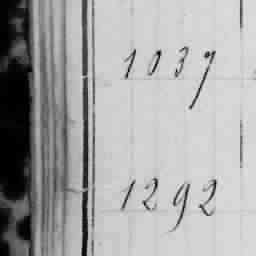 1037
1292